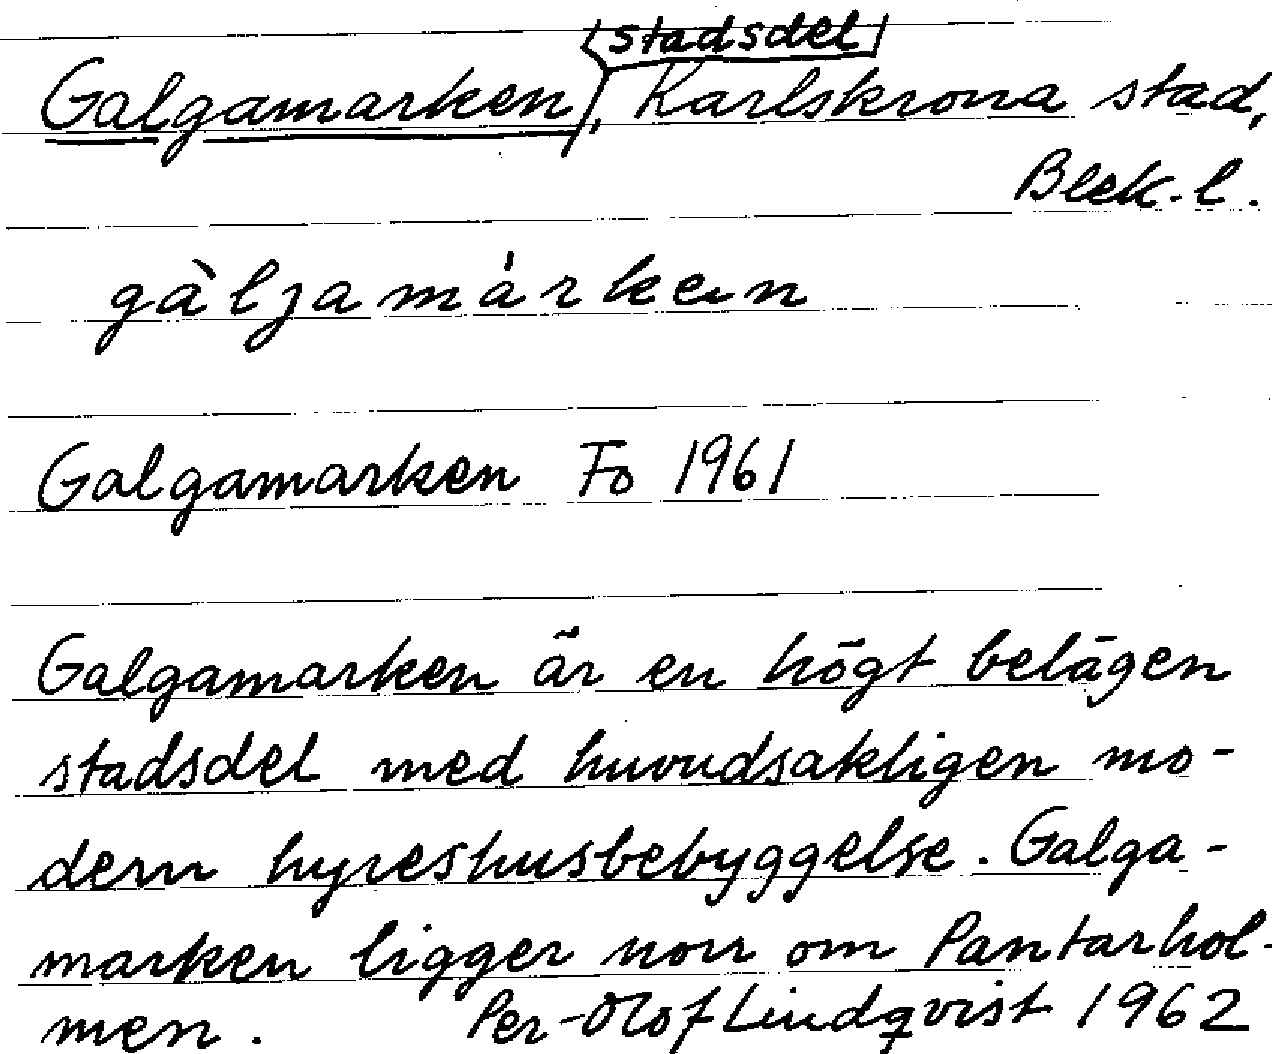 stadsdel
Galgamarken, Karlskrona stad,
Blek. l.
gàljamárken
Galgamarken Fo 1961
Galgamarken är en högt belägen
stadsdel med huvudsakligen mo-
dern hyreshusbebyggelse. Galga-
marken ligger norr om Pantarhol-
men. Per-Olof Lindqvist 1962